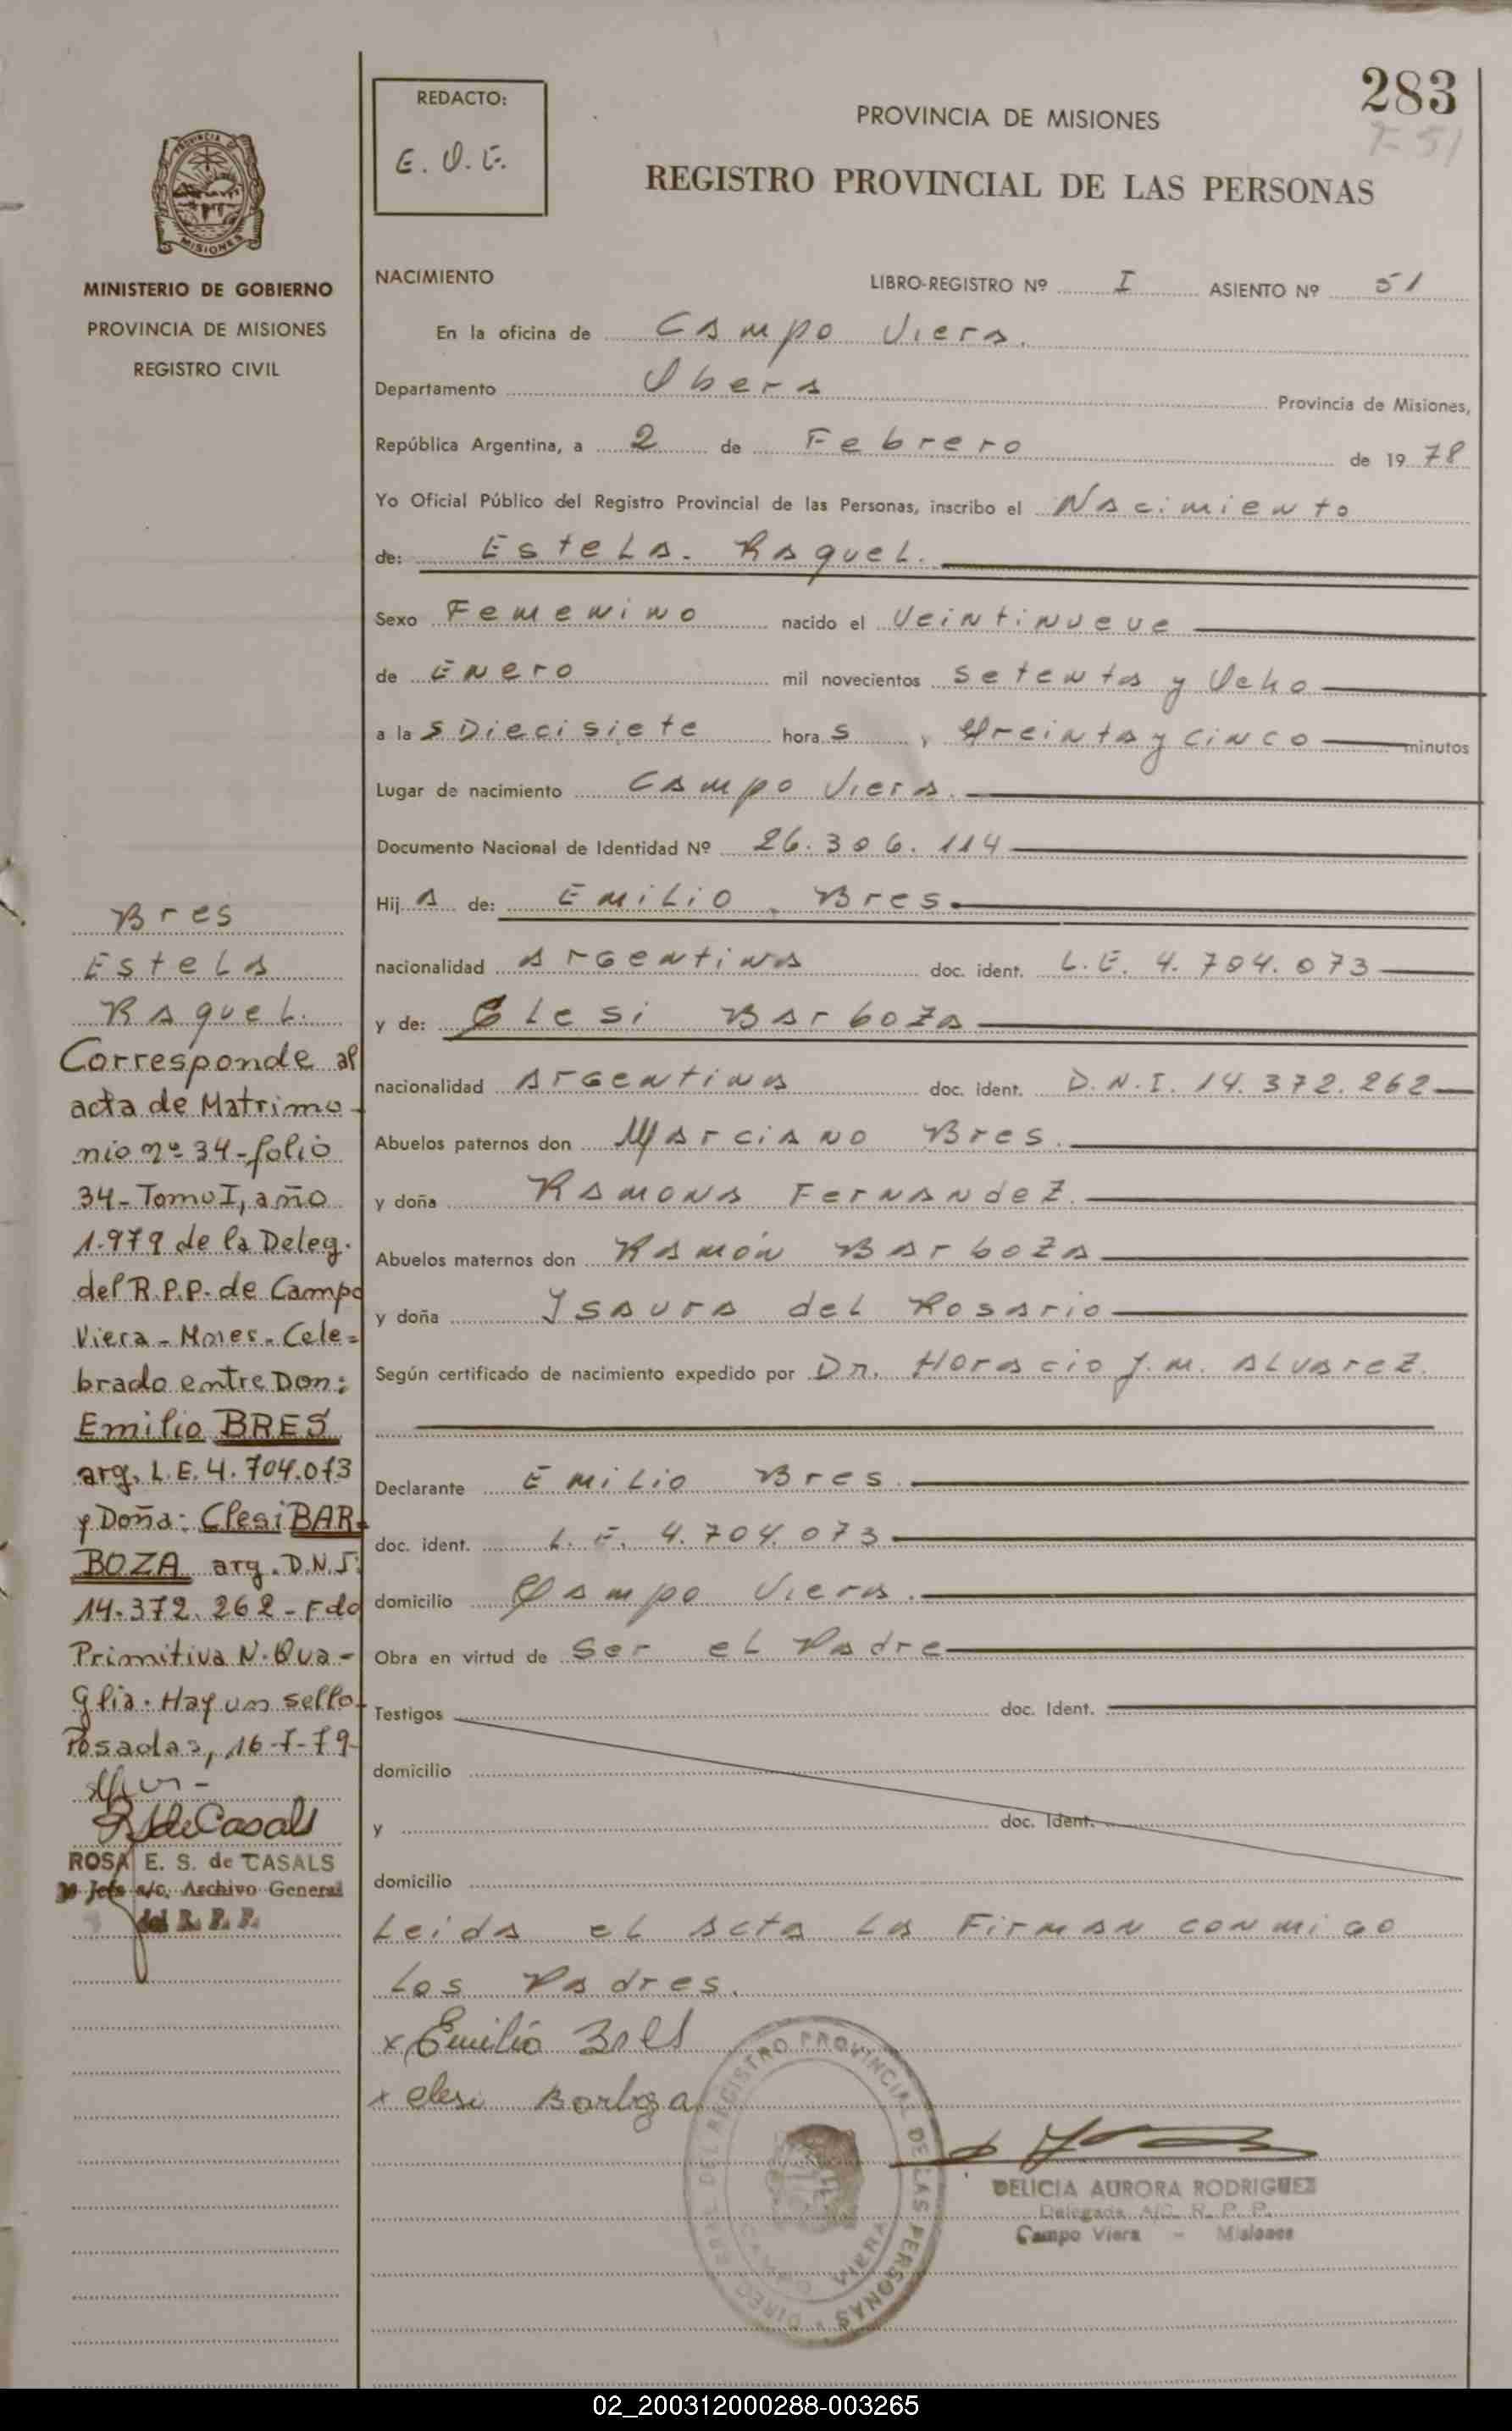 283
T-51
REDACTO:
E. O. E.
PROVINCIA DE MISIONES
REGISTRO PROVINCIAL DE LAS PERSONAS
PROVINCIA
MISIONES
MINISTERIO DE GOBIERNO
PROVINCIA DE MISIONES
REGISTRO CIVIL
NACIMIENTO
LIBRO-REGISTRO Nº I ASIENTO Nº 51
En la oficina de Campo Viera.
Departamento Obera Provincia de Misiones,
República Argentina, a 2 de Febrero de 1978
Yo Oficial Público del Registro Provincial de las Personas, inscribo el Nacimiento
de: Estela. Raquel.
Sexo Femenino nacido el Veintinueve
de Enero mil novecientos setenta y Ocho
a las Diecisiete horas, Treinta y cinco minutos
Lugar de nacimiento Campo Viera.
Documento Nacional de Identidad Nº 26.306.114
Hija de: Emilio Bres
nacionalidad Argentina doc. ident. L.E. 4.704.073
y de: Clesi Barboza
nacionalidad Argentina doc. ident. D.N.I. 14.372.262
Abuelos paternos don Marciano Bres.
y doña Ramona Fernandez.
Abuelos maternos don Ramón Barboza
y doña Ysaura del Rosario
Según certificado de nacimiento expedido por Dr. Horacio J.M. Alvarez.
Declarante Emilio Bres.
doc. ident. L.E. 4.704.073
domicilio Campo Viera.
Obra en virtud de Ser el Padre
Testigos doc. Ident.
domicilio
y doc. Ident.
domicilio
Leida el acta la Firman conmigo
Los Padres.
x Emilio Bres
x clesi Barboza
DIREC GRAL DEL REGISTRO PROVINCIAL DE LAS PERSONAS
CAMPO VIERA
DELICIA AURORA RODRIGUEZ
Delegada A/C. R. P. P.
Campo Viera - Misiones
Bres
Estela
Raquel.
Corresponde al
acta de Matrimo-
nio nº 34-folio
34-Tomo I, año
1.979 de la Deleg.
del R.P.P. de Campo
Viera-Mnes. Cele=
brado entre Don:
Emilio BRES
arg. L.E. 4.704.073
y Doña: Clesi BAR=
BOZA arg. D.N.I.
14.372.262-Fdo
Primitiva N. Qua-
glia. Hay un sello-
Posadas, 16-I-79-
R S de Casals
ROSA E. S. de CASALS
Jefe a/c. Archivo General
del R. P. P.
02_200312000288-003265